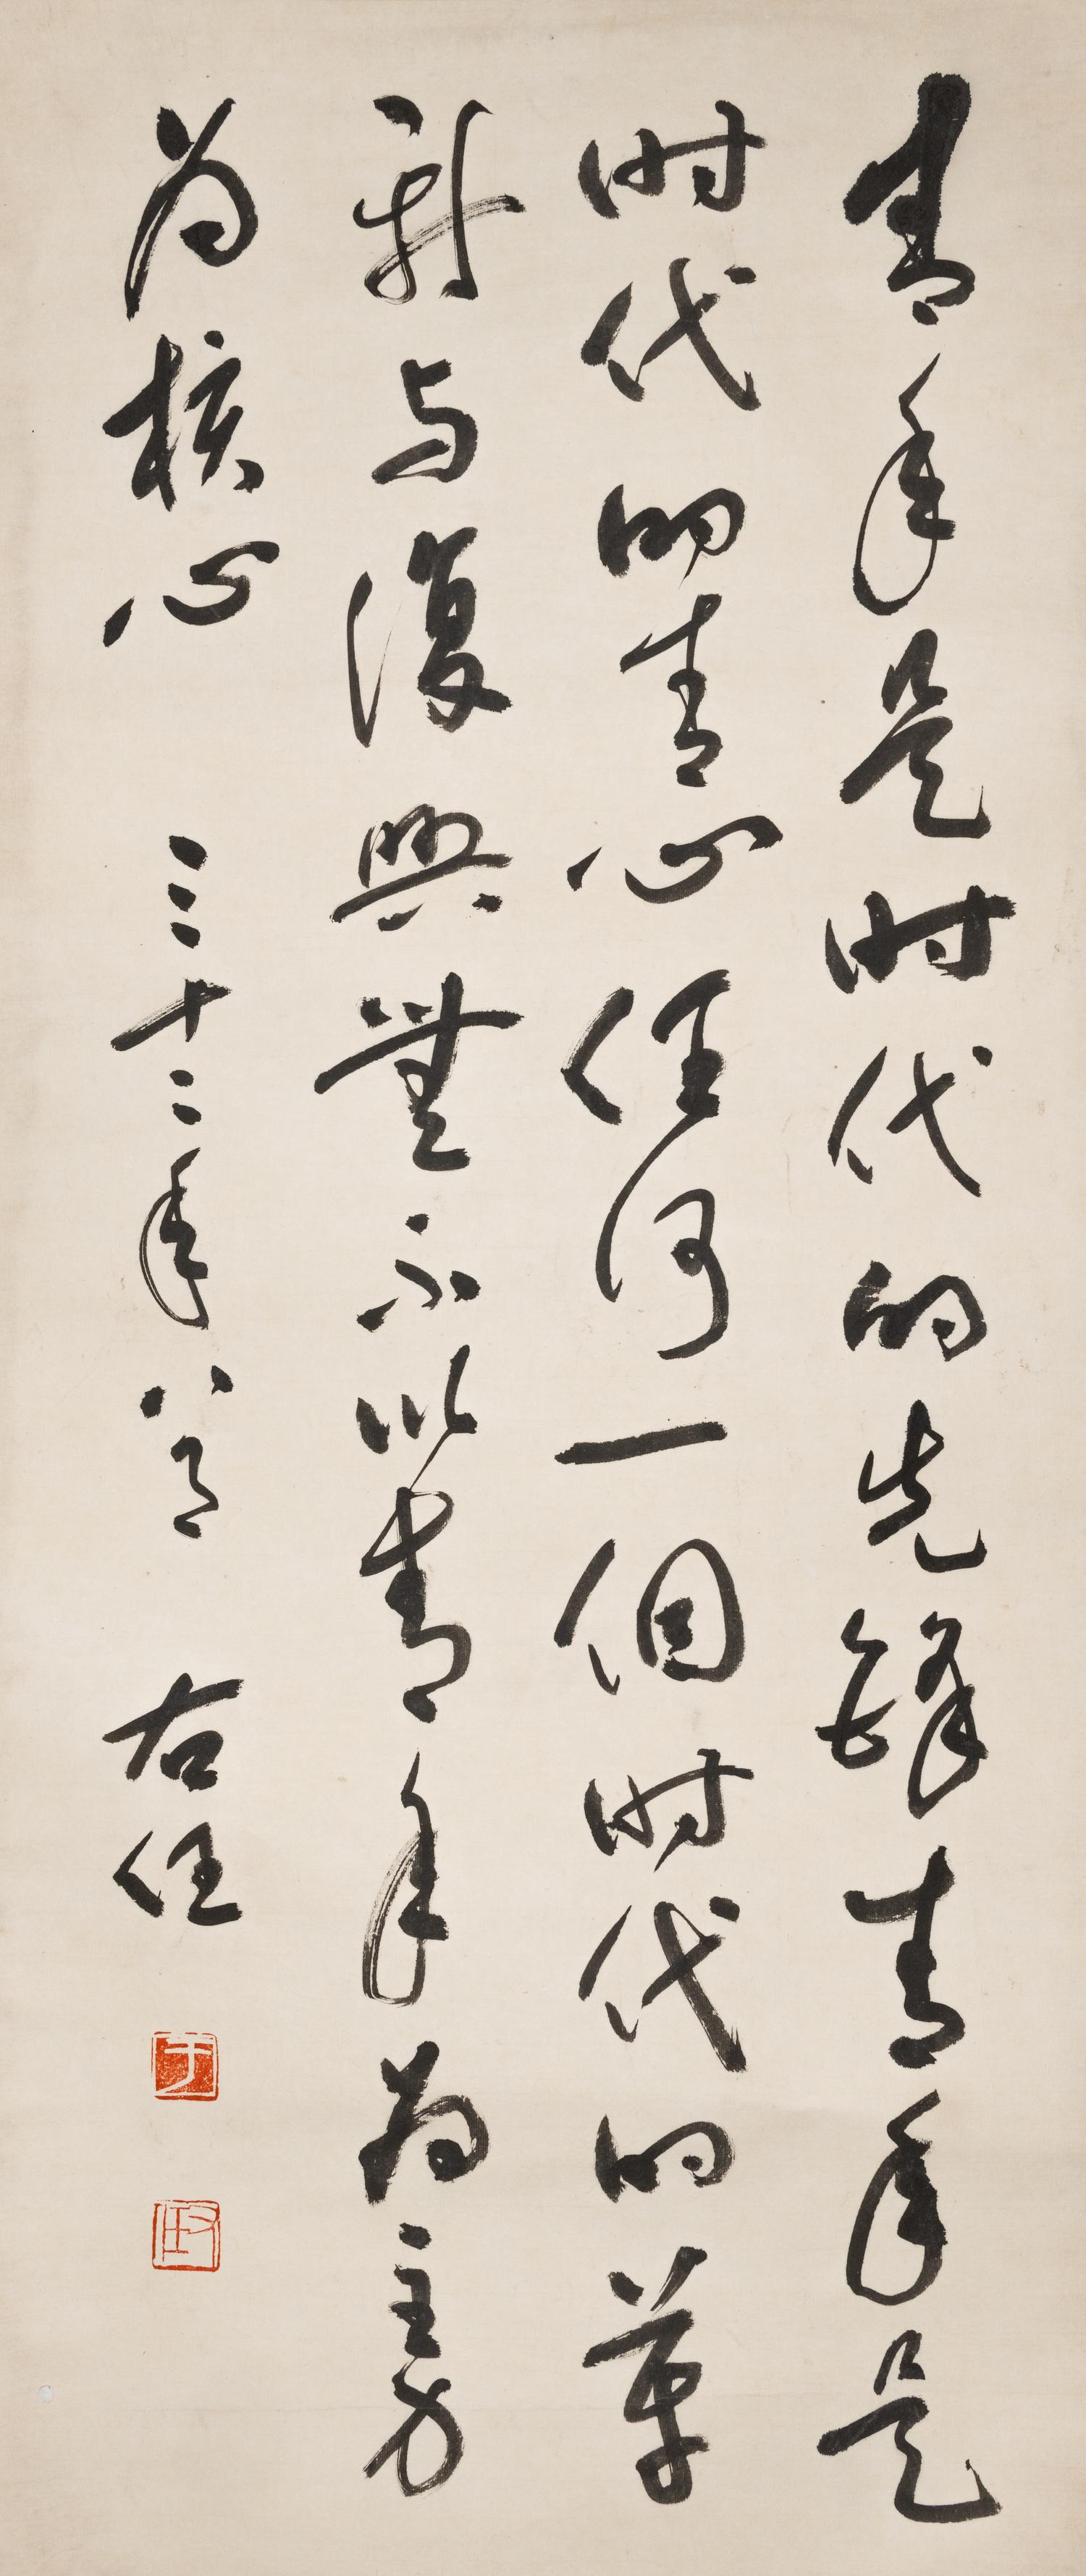 青年是時代的先鋒青年是
時代的青心任何一個時代的革
新与復興無不以青年為主力
為核心 三十二年八月 右任
于
右任